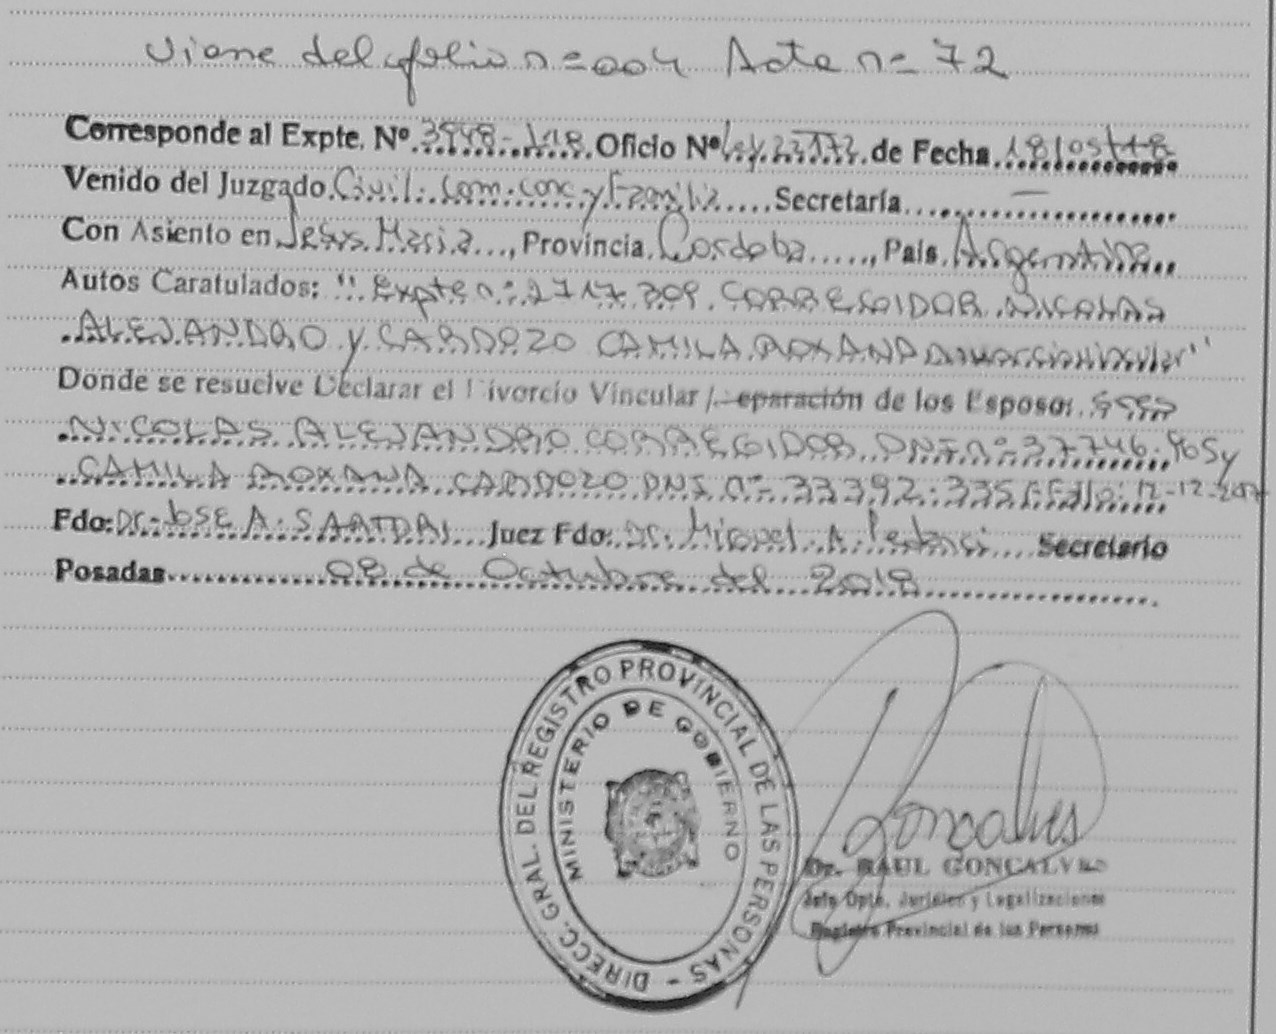 Viene del folio n=004 Acta n= 72
Corresponde al Expte. Nº 3948-18 Oficio Nº Ley 22172 de Fecha 18/05/18
Venido del Juzgado Civil. Com. Conc y Familia Secretaría —
Con Asiento en Jesus Maria, Provincia Cordoba, País Argentina
Autos Caratulados: "Expte n= 2717309. CORREGIDOR NICOLAS
ALEJANDRO y CARDOZO CAMILA ROXANA Divorcio vincular"
Donde se resuelve Declarar el Divorcio Vincular / Separación de los Esposos
NICOLAS ALEJANDRO CORREGIDOR DNI n= 37746.905 y
CAMILA ROXANA CARDOZO DNI n= 33392.335 Fallo: 12-12-2017
Fdo: Dr. Jose A. Juez Fdo: Dr. Miguel A. Pedano Secretario
Posadas 08 de Octubre del 2018
DIRECC. GRAL. DEL REGISTRO PROVINCIAL DE LAS PERSONAS -
MINISTERIO DE GOBIERNO
Goncalves
Dr. RAUL GONCALVES
Jefe Dpto. Jurídico y Legalizaciones
Registro Provincial de las Personas